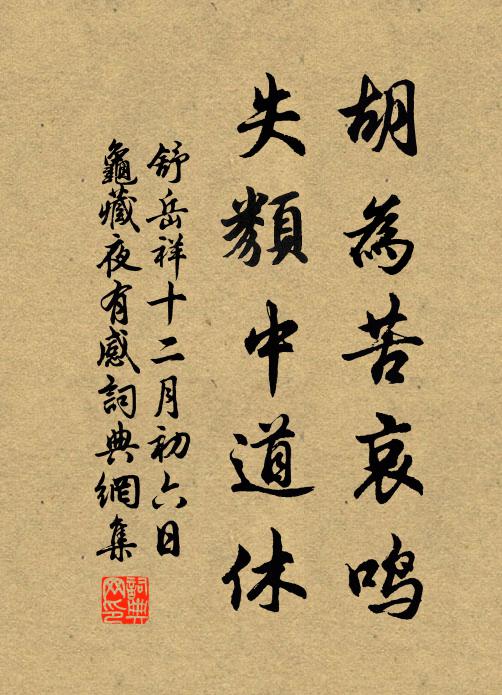 胡為苦哀鳴
失類中道休
舒岳祥十二月初六日
龜藏夜有感詞典網集
詞典網印